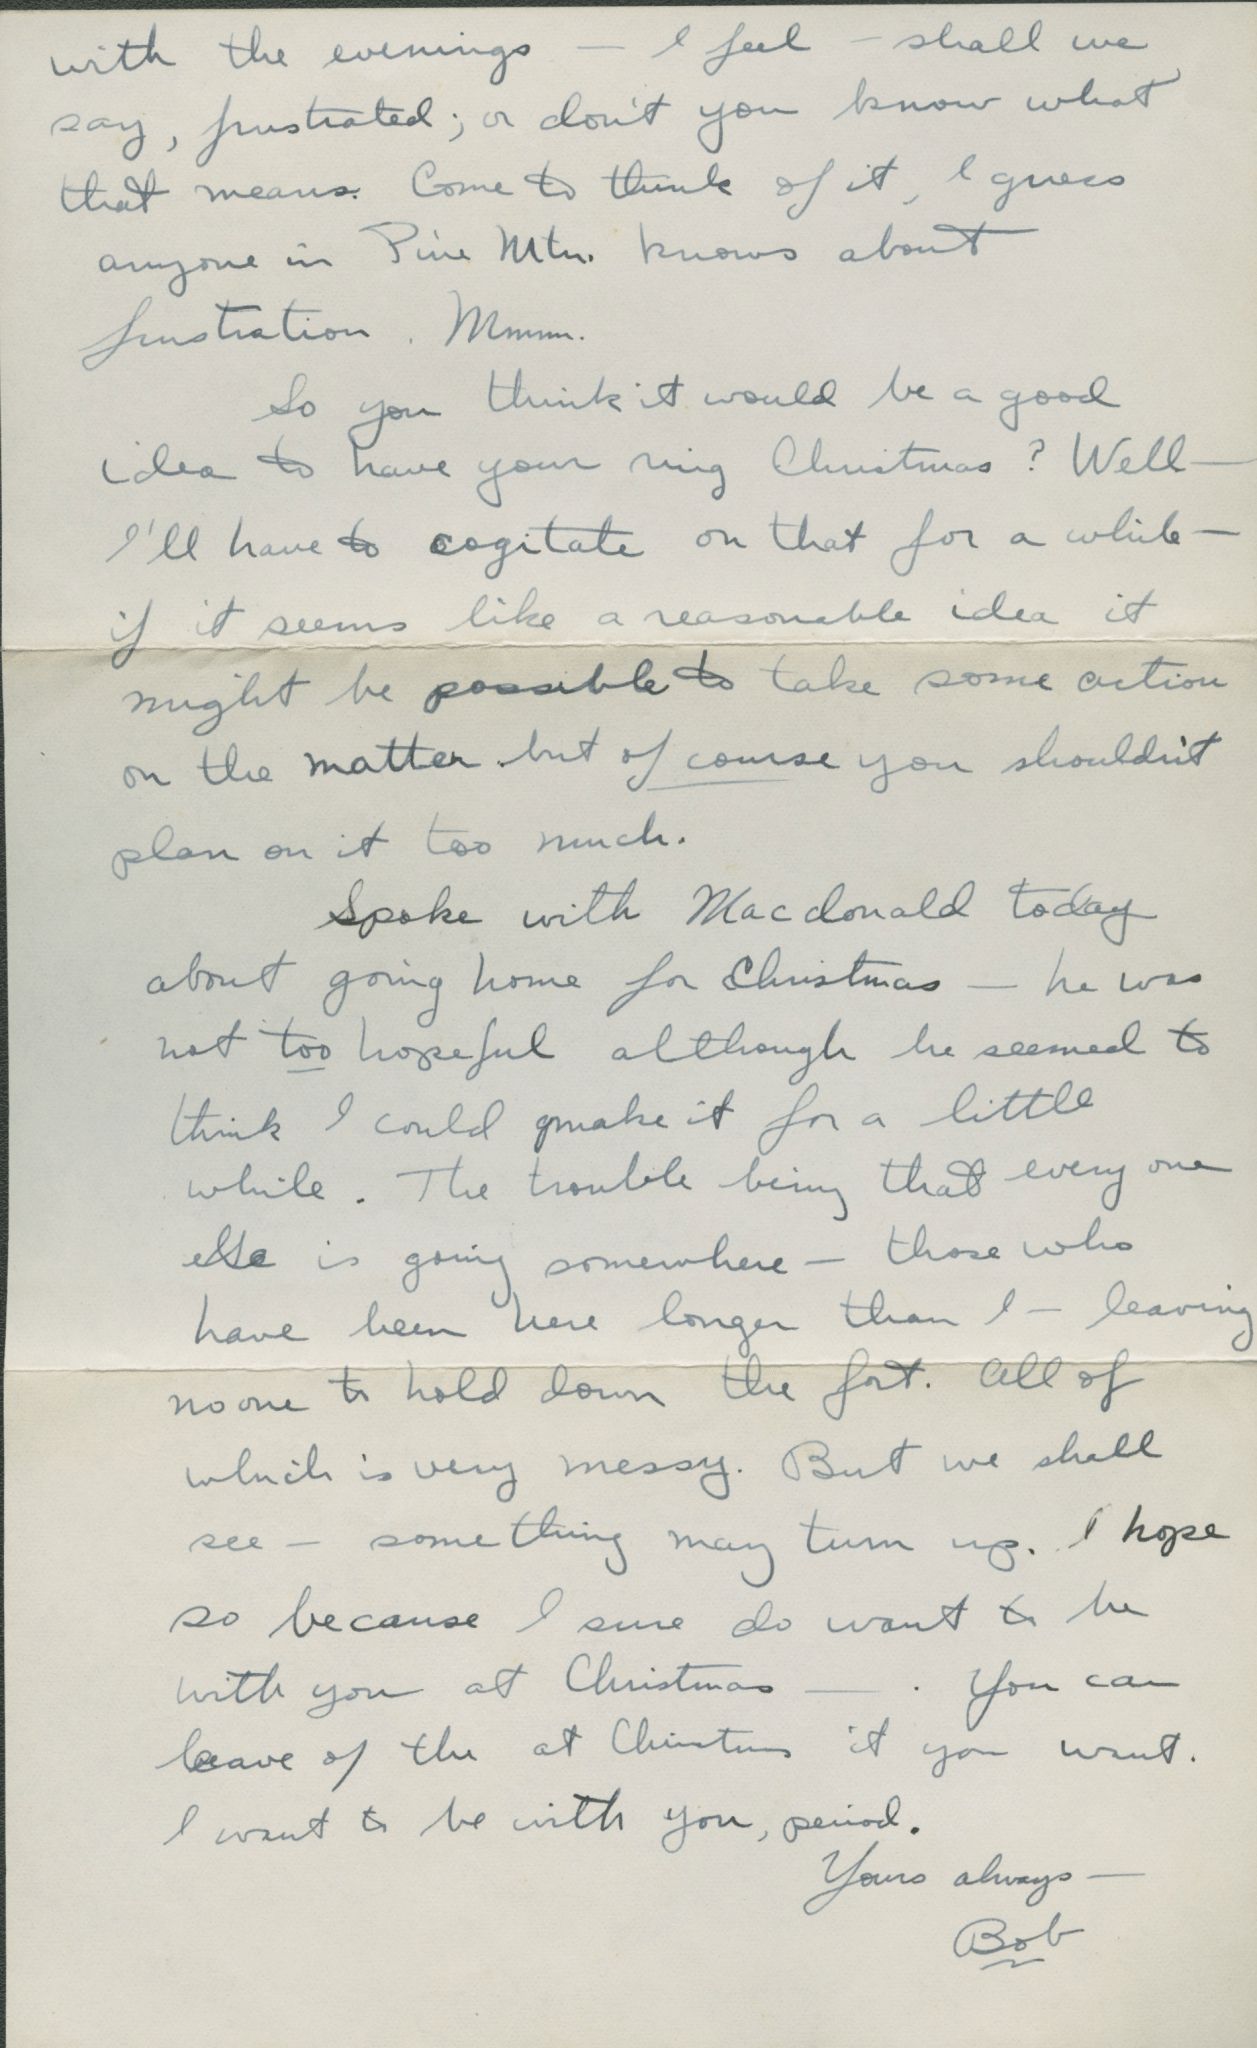 with the evenings — I feel — shall we
say, frustrated; or don't you know what
that means. Come to think of it, I guess
anyone in Pine Mtn. knows about
frustration. Mmmm.
So you think it would be a good
idea to have your ring Christmas? Well—
I'll have to cogitate on that for a while—
if it seems like a reasonable idea it
might be possible to take some action
on the matter but of course you shouldn't
plan on it too much.
Spoke with Macdonald today
about going home for Christmas — he was
not too hopeful although he seemed to
think I could make it for a little
while. The trouble being that every one
else is going somewhere — those who
have been here longer than I — leaving
no one to hold down the fort. All of
which is very messy. But we shall
see — something may turn up. I hope
so because I sure do want to be
with you at Christmas — . You can
leave of the at Christmas if you want.
I want to be with you, period.
Yours always —
Bob